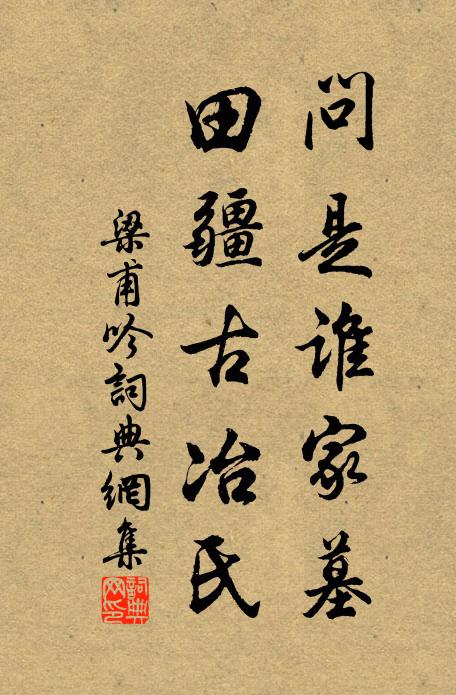 問是誰家墓
田疆古冶氏
梁甫吟詞典網集
詞典网印